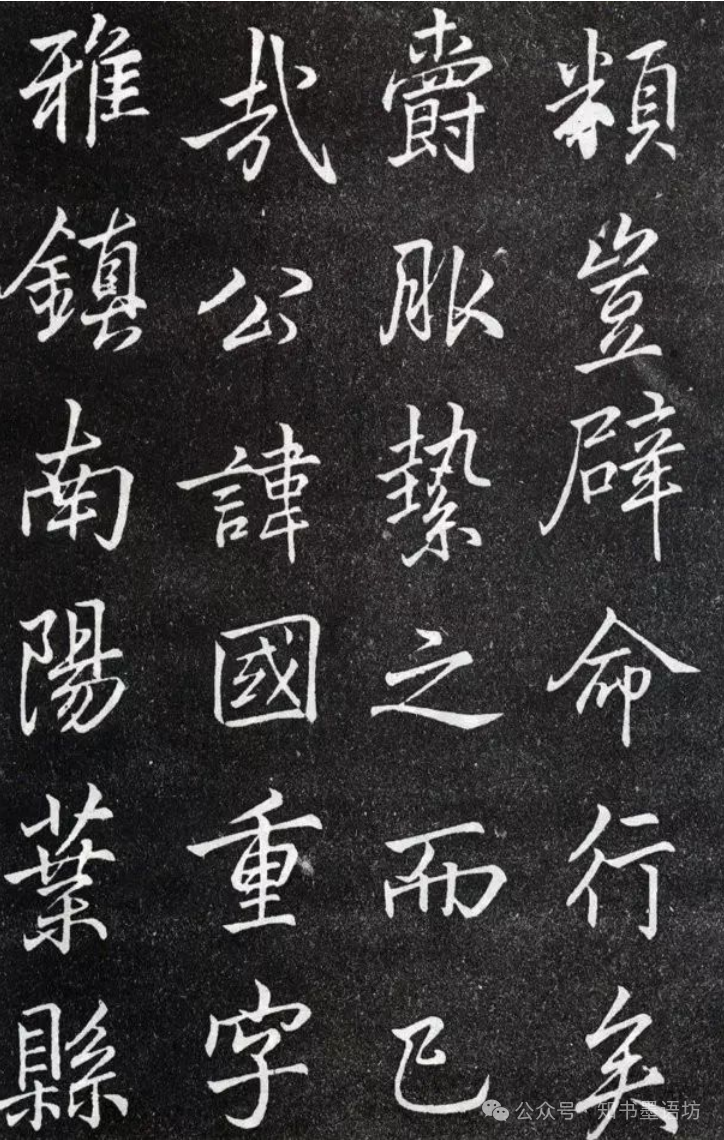 類豈辟命行矣
爵服縶之而已
哉公諱國重字
雅鎮南陽葉縣
公众号 · 知书墨语坊